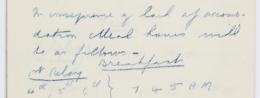 In consequence of lack of accom-
dation Meal hours will
be as follows:-
Breakfast
at Relay
2nd, 3rd, } 7.45 AM